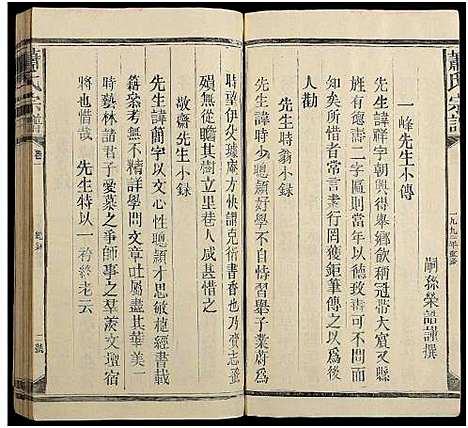 蕭氏宗譜
嗣孫榮誥謹撰
一峰先生小傳
先生諱祥字朝興得舉鄉飲稱冠帶大賓又縣
姓有德壽二字匾則當年以德致壽可不問而
知所惜者常言行罔獲鉅筆傳之以為後
人勸
先生時翁小錄
先生諱時少聰穎好學不自恃習舉子業蔚為
時望伊尖璩庵方快讀克衍書香也乃賚志歿
殞無從瞻其樹立里巷人咸甚惜之
敬齋先生小錄
先生諱蘭字以文心性聰穎才思敏穩經書載
籍案考無不精詳學問文章吐屬盡其華美一
時藝林諸君子愛慕之爭師事之羣羨文壇宿
將也惜哉 先生特以一衿終老云
蕭氏宗譜
卷一
二號